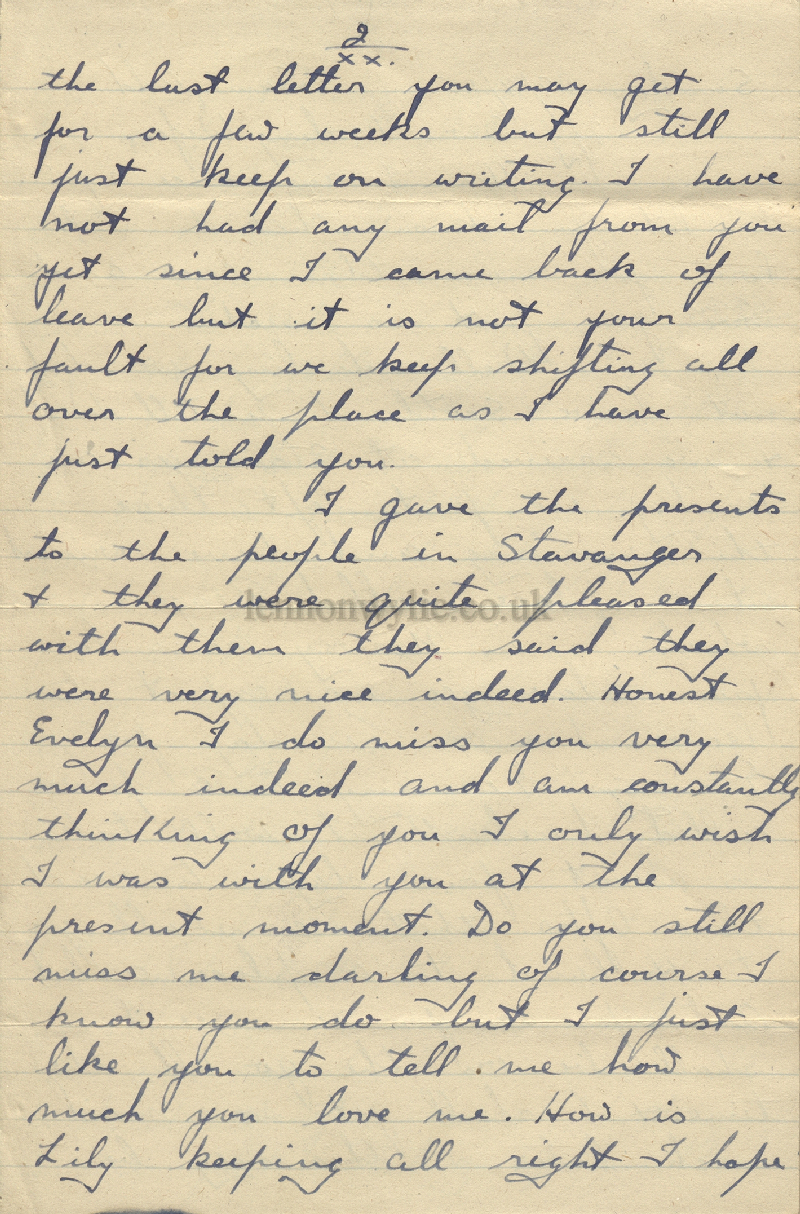 2
xx.
the last letter you may get
for a few weeks but still
just keep on writing. I have
not had any mail from you
yet since I came back of
leave but it is not your
fault for we keep shifting all
over the place as I have
just told you.
I gave the presents
to the people in Stavanger
& they were quite pleased
lennonwylie.co.uk
with them they said they
were very nice indeed. Honest
Evelyn I do miss you very
much indeed and am constantly
thinking of you I only wish
I was with you at the
present moment. Do you still
miss me darling of course I
know you do but I just
like you to tell me how
much you love me. How is
Lily keeping all right I hope